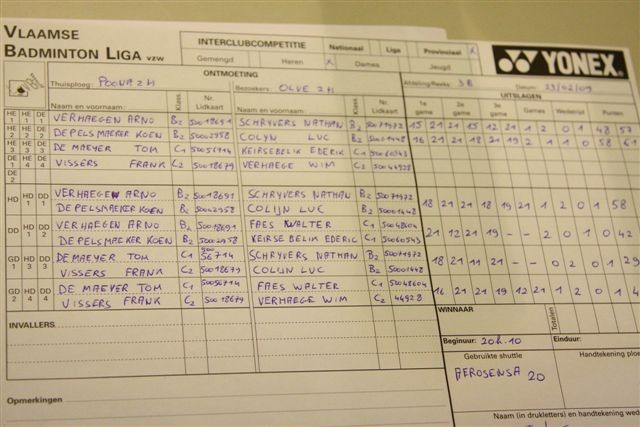 VLAAMSE
BADMINTON LIGA vzw
INTERCLUBCOMPETITIE Nationaal Liga Provinciaal X
Gemengd Heren X Dames Jeugd
YONEX
ONTMOETING
Thuisploeg: POONA 2H Bezoekers: OLVE 2H Afdeling/Reeks: 3B Datum: 23/02/09
UITSLAGEN
Naam en voornaam: Klasse Nr. Lidkaart Naam en voornaam: Klasse Nr. Lidkaart 1e game 2e game 3e game Games Wedstrijd Punten
HE 1 HE 1 DE 1 VERHAEGEN ARNO B2 50018691 SCHRYVERS NATHAN B2 50071972 15 21 21 15 12 21 1 2 0 1 48 57
HE 2 HE 2 DE 2 DEPELSMAEKER KOEN B2 50002958 COLYN LUC B2 50001448 16 21 21 18 21 19 2 1 1 0 58
HE 3 HE 3 DE 3 DE MAEYER TOM C1 50056714 KEIRSEBELIK EDERIK C1 50060543
DE 1 HE 4 DE 4 VISSERS FRANK C2 50018679 VERHAEGE WIM C2 50044928
DE 2
HD HD 1 DD 1 VERHAEGEN ARNO B2 50018691 SCHRYVERS NATHAN B2 50071972 18 21 21 18 19 21 1 2 0 1 58
DEPELSMAEKER KOEN B2 50002958 COLIJN LUC B2 50001448
DD HD 2 DD 2 VERHAEGEN ARNO B2 50018691 FAES WALTER C1 50048604 21 12 21 19 - - 2 0 1 0 42
DEPELSMAEKER KOEN B2 50002958 KEIRSEBELIK EDERIC C1 50060543
GD 1 HD 3 DD 3 DEMAEYER TOM C1 50056714 SCHRYVERS NATHAN B2 50071972 18 21 11 21 - - 0 2 0 1 29
VISSERS FRANK C2 50018679 COLIJN LUC B2 50001448
GD 2 HD 4 DD 4 DE MAEYER TOM C1 50056714 FAES WALTER C1 50048604 16 21 21 19 12 21 1 2 0 1
VISSERS FRANK C2 50018679 VERHAEGE WIM C2 44928
INVALLERS: WINNAAR Totalen
Beginuur: 20h.10 Einduur:
Gebruikte shuttle Handtekening plo
AEROSENSA 20
Opmerkingen Naam (in drukletters) en handtekening wed